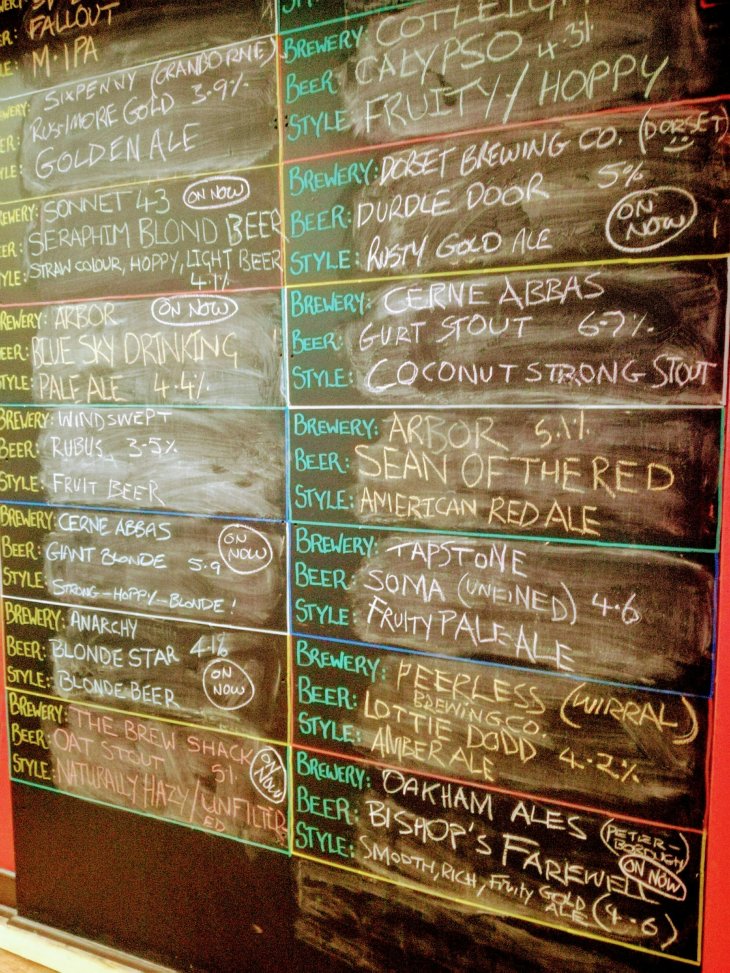 FALLOUT
M.IPA
SIXPENNY (CRANBORNE)
RUSHMORE GOLD 3.9%
GOLDEN ALE
BREWERY: SONNET 43 ON NOW
SERAPHIM BLOND BEER
STRAW COLOUR, HOPPY, LIGHT BEER
4.1%
BREWERY: ARBOR ON NOW
BEER: BLUE SKY DRINKING
STYLE: PALE ALE 4.4%
BREWERY: WINDSWEPT
BEER: RUBUS 3.5%
STYLE: FRUIT BEER
BREWERY: CERNE ABBAS
BEER: GIANT BLONDE 5.9 ON NOW
STYLE: STRONG-HOPPY-BLONDE!
BREWERY: ANARCHY
BEER: BLONDE STAR 4.1%
STYLE: BLONDE BEER ON NOW
BREWERY: THE BREW SHACK
BEER: OAT STOUT 5% ON NOW
STYLE: NATURALLY HAZY/UNFILTER
ED
BREWERY: COTLEIGH
BEER: CALYPSO 4.3%
STYLE: FRUITY/HOPPY
BREWERY: DORSET BREWING CO. (DORSET)
BEER: DURDLE DOOR 5%
STYLE: RUSTY GOLD ALE ON NOW
BREWERY: CERNE ABBAS
BEER: GURT STOUT 6.7%
STYLE: COCONUT STRONG STOUT
BREWERY: ARBOR 5.1%
BEER: SEAN OF THE RED
STYLE: AMERICAN RED ALE
BREWERY: TAPSTONE
BEER: SOMA (UNFINED) 4.6
STYLE: FRUITY PALE ALE
BREWERY: PEERLESS (WIRRAL)
BREWING CO.
BEER: LOTTIE DODD
STYLE: AMBER ALE 4.2%
BREWERY: OAKHAM ALES (PETER-
BOROUGH)
BEER: BISHOP'S FAREWELL ON NOW
STYLE: SMOOTH, RICH, FRUITY GOLD
ALE (4.6)